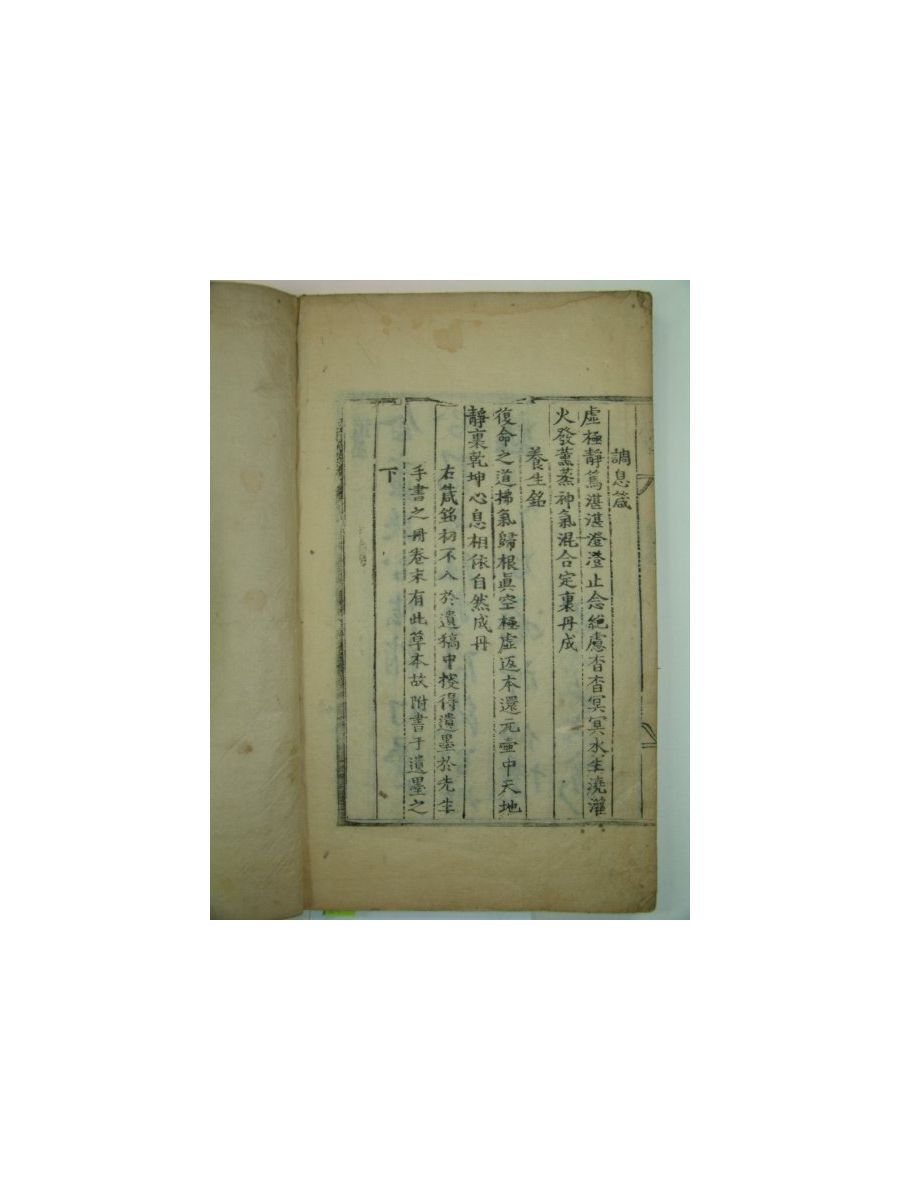 調息箴
虛極靜篤湛湛澄澄止念絶慮杳杳冥冥水生澆灌
火發薰蒸神氣混合定裏丹成
養生銘
復命之道揷氣歸根眞空極虛返本還元壷中天地
靜裏乾坤心息相依自然成丹
右箴銘初不入於遺稿中搜得遺墨於先生
手書之冊卷末有此草本故附書于遺墨之
下